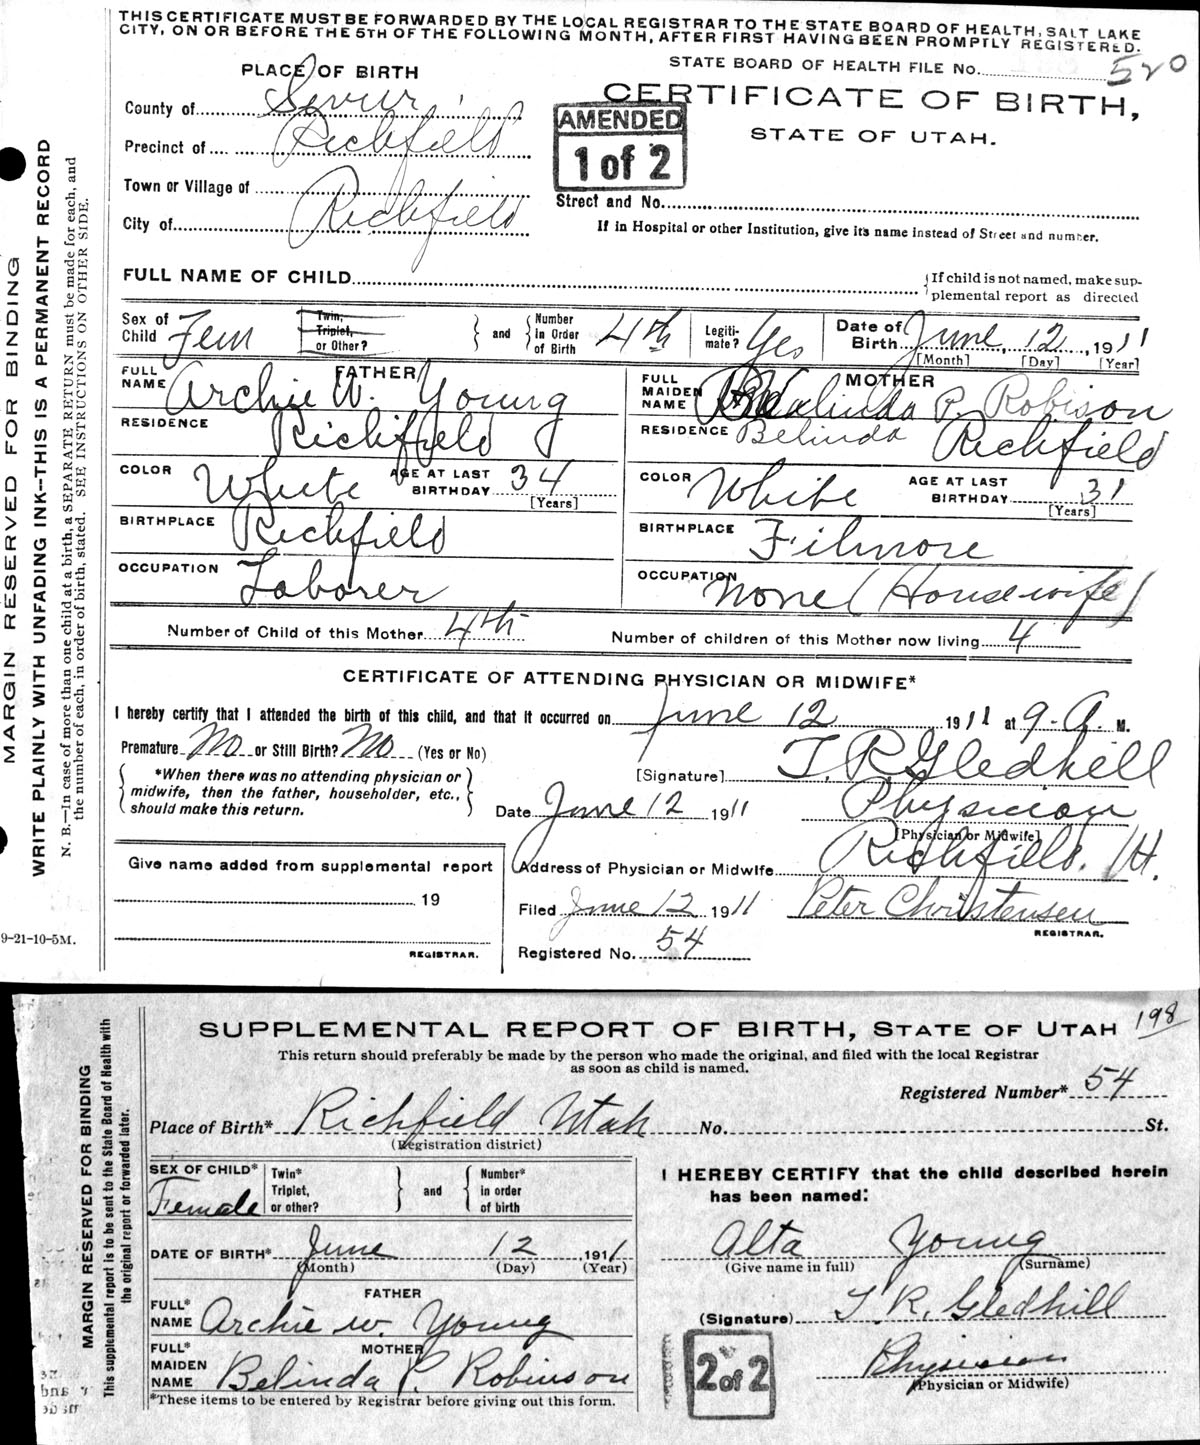 THIS CERTIFICATE MUST BE FORWARDED BY THE LOCAL REGISTRAR TO THE STATE BOARD OF HEALTH, SALT LAKE
CITY, ON OR BEFORE THE 5TH OF THE FOLLOWING MONTH, AFTER FIRST HAVING BEEN PROMPTLY REGISTERED.
PLACE OF BIRTH
STATE BOARD OF HEALTH FILE No. 520
County of Sevier
CERTIFICATE OF BIRTH,
STATE OF UTAH.
AMENDED
1 of 2
Precinct of Richfield
Town or Village of
City of Richfield
Street and No.
If in Hospital or other Institution, give its name instead of Street and number.
FULL NAME OF CHILD
If child is not named, make sup-
plemental report as directed
Sex of Child Fem
Twin, Triplet, or Other?
and
Number in Order of Birth 4th
Legiti-mate? Yes
Date of Birth June 12, 1911
[Month] [Day] [Year]
FATHER
FULL NAME Archie W. Young
RESIDENCE Richfield
COLOR White AGE AT LAST BIRTHDAY 34 [Years]
BIRTHPLACE Richfield
OCCUPATION Laborer
MOTHER
FULL MAIDEN NAME Malinda P. Robison
Belinda
RESIDENCE Richfield
COLOR White AGE AT LAST BIRTHDAY 31 [Years]
BIRTHPLACE Filmore
OCCUPATION None (Housewife)
Number of Child of this Mother 4th Number of children of this Mother now living 4
CERTIFICATE OF ATTENDING PHYSICIAN OR MIDWIFE*
I hereby certify that I attended the birth of this child, and that it occurred on June 12 1911 at 9 A. M.
Premature No or Still Birth? No (Yes or No)
*When there was no attending physician or
midwife, then the father, householder, etc.,
should make this return.
[Signature] T. R. Gledhill
Date June 12 1911 Physician
[Physician or Midwife]
Address of Physician or Midwife Richfield.
Give name added from supplemental report
19
REGISTRAR.
Filed June 12 1911 Peter Christensen
REGISTRAR.
Registered No. 54
9-21-10-5M.
MARGIN RESERVED FOR BINDING
WRITE PLAINLY WITH UNFADING INK--THIS IS A PERMANENT RECORD
N. B.—In case of more than one child at a birth, a SEPARATE RETURN must be made for each, and
the number of each, in order of birth, stated. SEE INSTRUCTIONS ON OTHER SIDE.
SUPPLEMENTAL REPORT OF BIRTH, STATE OF UTAH 198
This return should preferably be made by the person who made the original, and filed with the local Registrar
as soon as child is named.
Registered Number* 54
Place of Birth* Richfield Utah No. St.
(Registration district)
SEX OF CHILD* Female
Twin* Triplet, or other?
and
Number* in order of birth
DATE OF BIRTH* June 12 1911
(Month) (Day) (Year)
FATHER
FULL* NAME Archie W. Young
MOTHER
FULL* MAIDEN NAME Belinda P. Robinson
*These items to be entered by Registrar before giving out this form.
I HEREBY CERTIFY that the child described herein
has been named:
Alta Young
(Give name in full) (Surname)
(Signature) T. R. Gledhill
2 of 2
Physician
(Physician or Midwife)
MARGIN RESERVED FOR BINDING
This supplemental report is to be sent to the State Board of Health with
the original report or forwarded later.